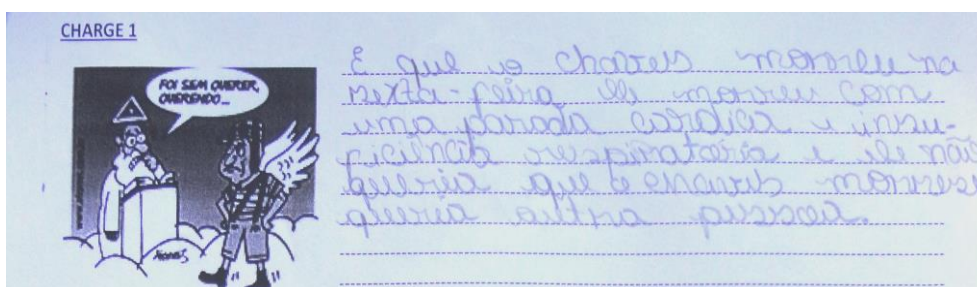 CHARGE 1
FOI SEM QUERER,
QUERENDO...
É que o chaves morreu na
sexta-feira ele morreu com
uma parada cardica e insu-
ficiência respiratoria e ele não
queria que o chaves morresse
queria outra pessoa.